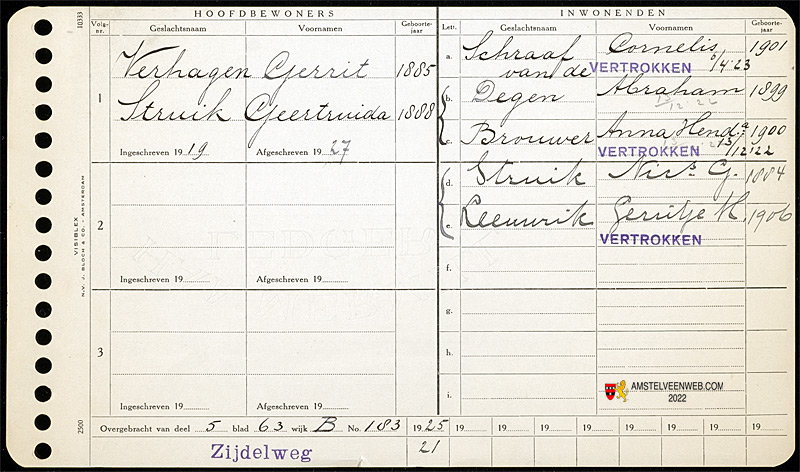 HOOFDBEWONERS
Volg-nr. Geslachtsnaam Voornamen Geboorte-jaar
1
Verhagen Gerrit 1885
Struik Geertruida 1888
Ingeschreven 19 19 Afgeschreven 19 27
2
Ingeschreven 19 Afgeschreven 19
3
Ingeschreven 19 Afgeschreven 19
INWONENDEN
Letr. Geslachtsnaam Voornamen Geboorte-jaar
a. Schraaf Cornelis, 1901
van de VERTROKKEN /4 23
b. Degen Abraham 1899
12.22
c. Brouwer Anna Hend.a 1900
VERTROKKEN 13/12 22
d. Struik G. 1884
e. Leeuwrik Gerritje H. 1906
VERTROKKEN
f.
g.
h.
i.
AMSTELVEENWEB.COM
2022
Overgebracht van deel 5 blad 63 wijk B No. 183 1925 19 19 19 19 19 19 19
Zijdelweg 21
10333
VISIBLEX
N.V. J. BLOCH & CO. - AMSTERDAM
2500